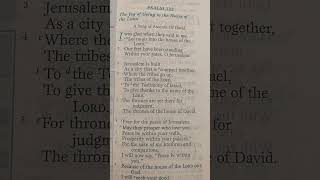 PSALM 122
The Joy of Going to the House of
the LORD
A Song of Ascents. Of David.
I was glad when they said to me,
"Let us go into the house of the
LORD."
2 Our feet have been standing
Within your gates, O Jerusalem!
3 Jerusalem is built
As a city that is compact together,
4 Where the tribes go up,
The tribes of the LORD,
To the Testimony of Israel,
To give thanks to the name of the
LORD.
5 For thrones are set there for
judgment,
The thrones of the house of David.
6 Pray for the peace of Jerusalem:
"May they prosper who love you.
7 Peace be within your walls,
Prosperity within your palaces."
8 For the sake of my brethren and
companions,
I will now say, "Peace be within
you."
9 Because of the house of the LORD our
God
I will seek your good.
3 Jerusalem
As a city
4 Where the
The tribes
To the
To give
LORD.
5 For thrones
judgment
The thrones
together,
of the
for
of David.